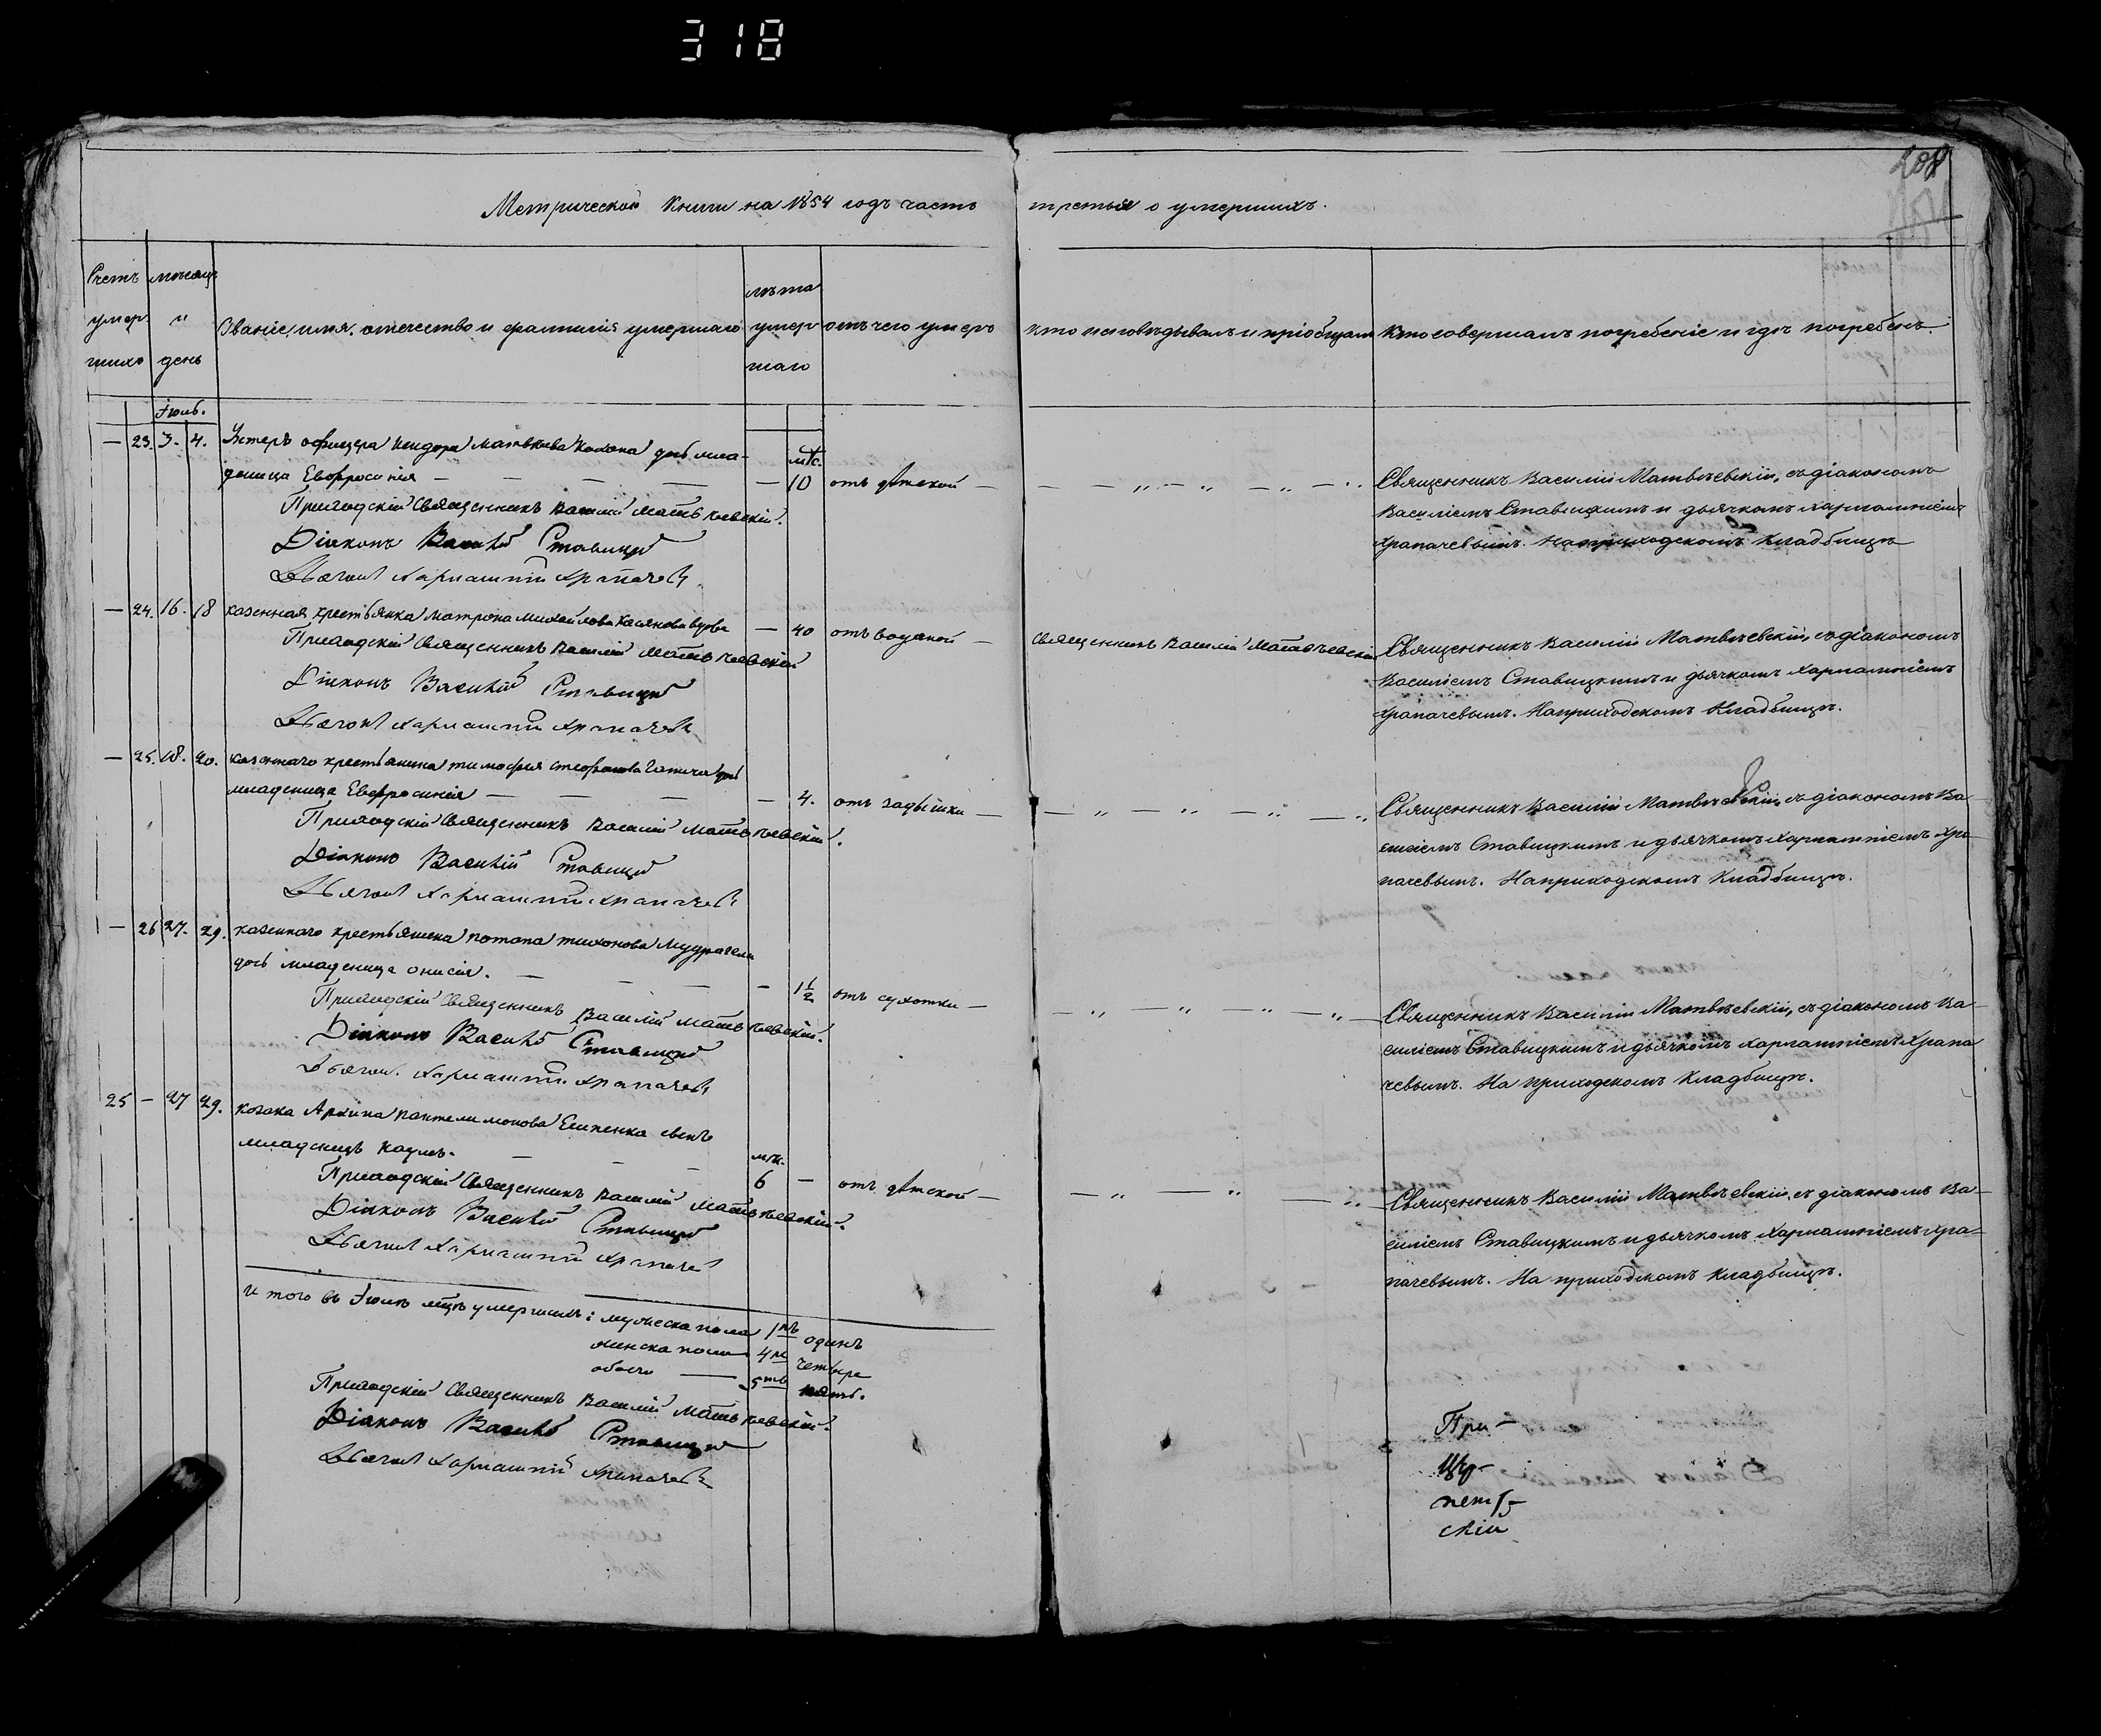 318
208
Метрической книги на 1854 годъ часть третья о умершихъ.
Счетъ умер шихъ
мѣсяцъ и день
Званіе, имя, отечество и фамилія умершаго
лѣта умер шаго
отъ чего умеръ
кто исповѣдывалъ и пріобщалъ
Кто совершалъ погребеніе и гдѣ погребенъ
Іюль.
— 23. 3. 4. Унтеръ офицера Матвѣева дочь мла-
деница Евфросинія — — — — — мѣс. 10 отъ дѣтской —
Приходскій Священникъ Василій Матвѣевскій.
Діаконъ Василій Ставицкій
Дьячокъ Харлампій Храпачевъ
— „ — „ — „ — „
Священникъ Василій Матвѣевскій, съ діакономъ
Василіемъ Ставицкимъ и дьячкомъ Харлампіемъ
Храпачевымъ. На приходскомъ Кладбищѣ
— 24. 16. 18 казенная крестьянка Матрона Михайлова Касянова вдова — 40 отъ водяной —
Приходскій Священникъ Василій Матвѣевскій
Діаконъ Василій Ставицкій
Дьячокъ Харлампій Храпачевъ
Священникъ Василій Матвѣевскій
Священникъ Василій Матвѣевскій, съ діакономъ
Василіемъ Ставицкимъ и дьячкомъ Харлампіемъ
Храпачевымъ. На приходскомъ Кладбищѣ.
— 25. 18. 20. казеннаго крестьянина Тимофея Стефанова дочь
младеница Евфросинія — — — — 4. отъ задышки —
Приходскій Священникъ Василій Матвѣевскій.
Діаконъ Василій Ставицкій
Дьячокъ Харлампій Храпачевъ
— „ — „ — „ — „
Священникъ Василій Матвѣевскій, съ діакономъ Ва-
силіемъ Ставицкимъ и дьячкомъ Харлампіемъ Хра-
пачевымъ. На приходскомъ Кладбищѣ.
— 26 27. 29. казеннаго крестьянина Потапа Тихонова
дочь младеница Онисія. — — — — 1 1/2 отъ сухотки —
Приходскій Священникъ Василій Матвѣевскій.
Діаконъ Василій Ставицкій
Дьячокъ Харлампій Храпачевъ
— „ — „ — „ —
Священникъ Василій Матвѣевскій, съ діакономъ Ва-
силіемъ Ставицкимъ и дьячкомъ Харлампіемъ Храпа
чевымъ. На приходскомъ Кладбищѣ.
25 — 27 29. козака Архипа Пантелимонова Есипенка сынъ
младенецъ Наумъ. — — — мѣс. 6 — отъ дѣтской —
Приходскій Священникъ Василій Матвѣевскій.
Діаконъ Василій Ставицкій
Дьячокъ Харлампій Храпачевъ
— „ — „ — „
Священникъ Василій Матвѣевскій, съ діакономъ Ва-
силіемъ Ставицкимъ и дьячкомъ Харлампіемъ Хра-
пачевымъ. На приходскомъ Кладбищѣ.
И того въ Іюлѣ мцѣ умершихъ: мужеска пола 1нъ одинъ
женска пола 4ре четыре
обоего — 5ть пять.
Приходскій Священникъ Василій Матвѣевскій.
Діаконъ Василій Ставицкій
Дьячокъ Харлампій Храпачевъ
При-